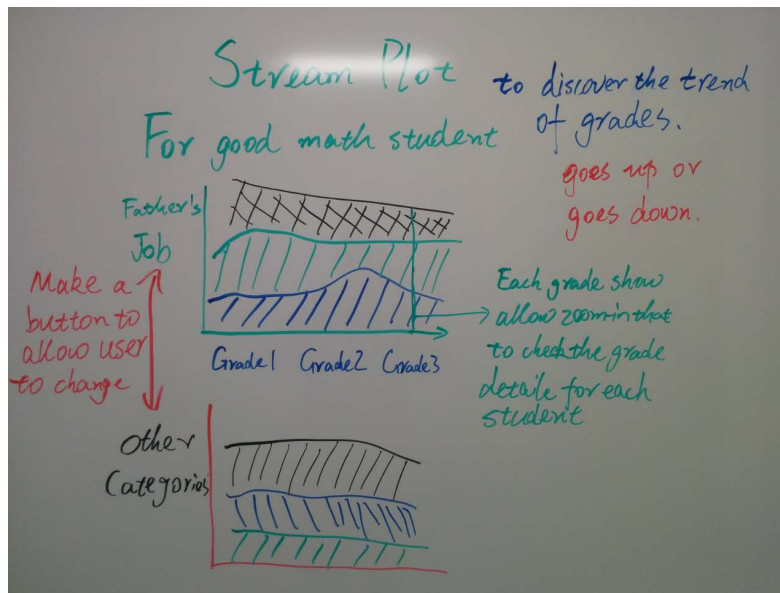 Stream Plot
For good math student
to discover the trend
of grades.
goes up or
goes down.
Father's
Job
Make a
button to
allow user
to change
Grade1 Grade2 Grade3
Each grade show
allow zoom in that
to check the grade
detaile for each
student
Other
Categories